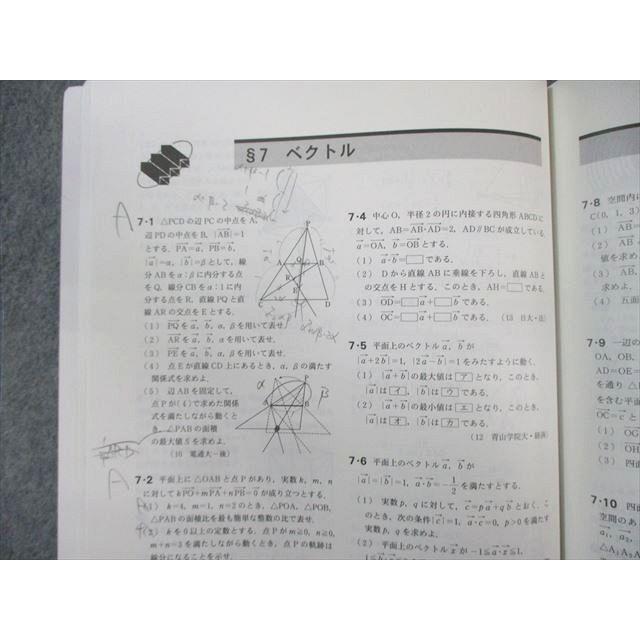 §7 ベクトル
A
7・1 △PCDの辺PCの中点をA,
辺PDの中点をB, |AB|=1
とする. PA=a, PB=b,
|a|=α, |b|=βとして, 線
分ABをα:βに内分する点
をQ, 線分CBをα:1に内
分する点をR, 直線PQと直
線ARの交点をEとする.
(1) PQをa, b, α, βを用いて表せ.
(2) ARをa, b, αを用いて表せ.
(3) PEをa, b, α, βを用いて表せ.
(4) 点Eが直線CD上にあるとき, α, βの満たす
関係式を求めよ.
(5) 辺ABを固定して,
点Pが(4)で求めた関係
式を満たしながら動くと
き, △PABの面積
の最大値Sを求めよ.
(10 電通大−後)
P
A
Q
B
R
E
C
D
α
β
A
7・2 平面上に△OABと点Pがあり, 実数k, m, n
に対してkPO+mPA+nPB=0が成り立つとする.
(1) k=4, m=1, n=2のとき, △POA, △POB,
△PABの面積比を最も簡単な整数の比で表せ.
(2) kを0以上の定数とする. 点Pがm≧0, n≧0,
m+n=3を満たしながら動くとき, 点Pの軌跡は
線分になることを示せ.
7・4 中心O, 半径2の円に内接する四角形ABCDに
対して, AB=AB・AD=2, AD∥BCが成立している.
a=OA, b=OBとする.
(1) a・b=□である.
(2) Dから直線ABに垂線を下ろし, 直線ABと
の交点をHとする. このとき, AH=□である.
(3) OD=□a+□bである.
(4) OC=□a+□bである. (13 日大・医)
7・5 平面上のベクトルa, bが
|a+2b|=1, |2a−b|=1をみたすように動く.
(1) |a+b|の最大値はアとなり, このとき,
|a|はイ, |b|はウである.
(2) |a+b|の最小値はエとなり, このとき,
|a|はオ, |b|はカである.
(12 青山学院大・経済)
7・6 平面上のベクトルa, bが
|a|=|b|=1, a・b=−1/2を満たすとする.
(1) 実数p, qに対して, c=pa+qbとおく. こ
のとき, 次の条件|c|=1, a・c=0, p>0を満たす
実数p, qを求めよ.
(2) 平面上のベクトルxが−1≦a・x≦1,
7・8 空間内に
C(0, 1, 3)
(1) AB=
(2) AB
値を求め
(3) AB
求めよ.
(4) 五面
7・9 一辺の
OA, OB,
AD=OE=
を通り△
を含む平面
OC=cと
(1) OG
(2) OH
(3) 四面
7・10 四面
空間のあ